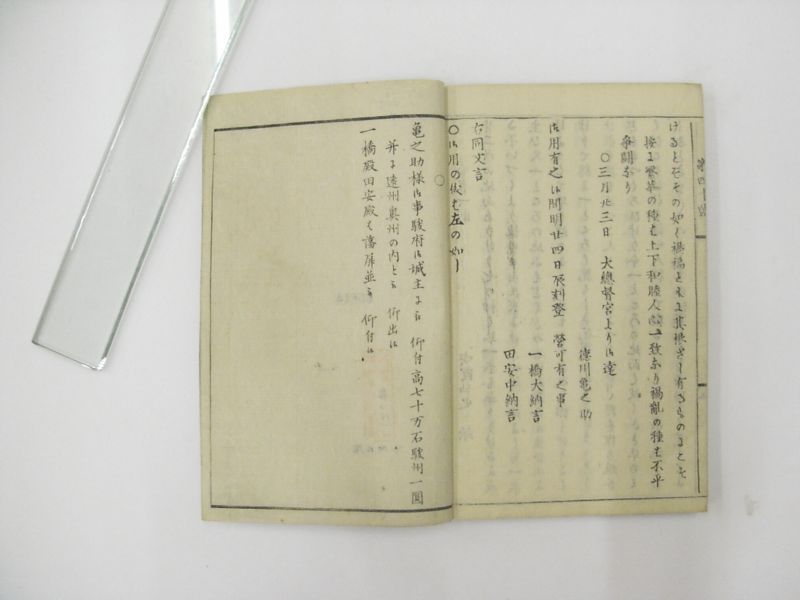 けるとぞその如く禍福ともに其根ざし有さものまことに
按に繁華の種は上下和睦人心一致なり禍亂の種は不平
爭鬪なり
〇三月廿三日 大總督宮より御達
徳川亀之助
一橋大納言
田安中納言
御用有之候間明廿四日辰刻登 營可有之事
右同文言
〇御用の儀は左の如し
〇
亀之助様御事駿府御城主に被 仰付高七十万石駿州一圓
并に遠州奥州の内とも被 仰出候
一橋殿田安殿は藩屏並被 仰付候